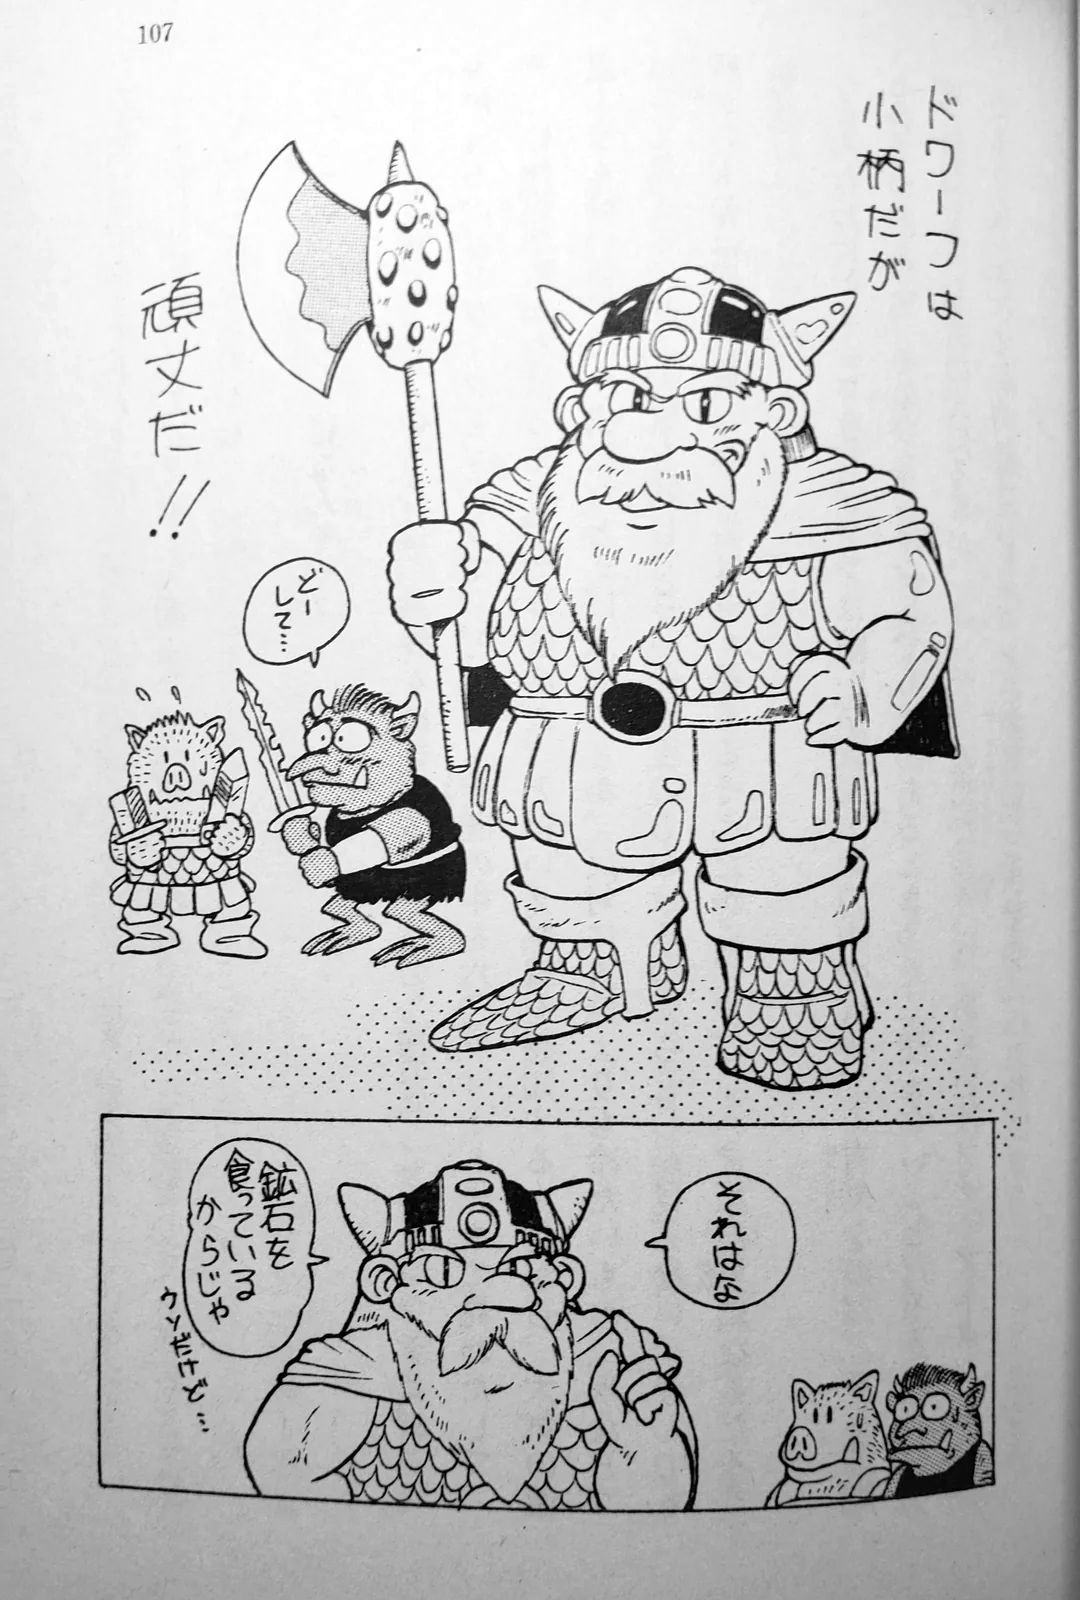 107
ドワーフは
小柄だが
頑丈だ!!
どー
して…
それはね
鉱石を
食っている
からじゃ
ウソだけど…